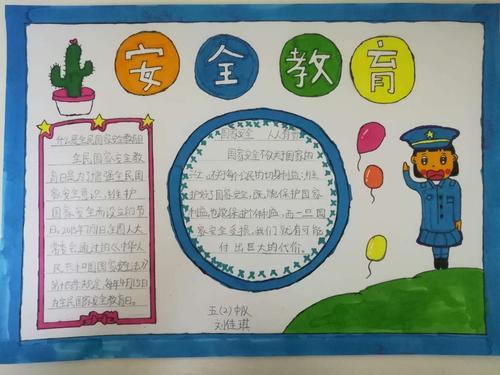 安全教育
什么是全民国家安全教育日
全民国家安全教
育日是为了增强全民国
家安全意识,维护
国家安全而设立的节
日。2015年7月1日全国人大
常委会通过的《中华人
民共和国国家安全法》
第十四条规定,每年4月15日
为全民国家安全教育日。
国家安全 人人有责
国家安全不仅关乎国家的
还关乎每个公民的切身利益;维
护好国家安全,既能保护国家
利益也能保护个体利益,而一旦国
家安全受损,我们就有可能
付出巨大的代价。
五(2)中队
刘佳琪